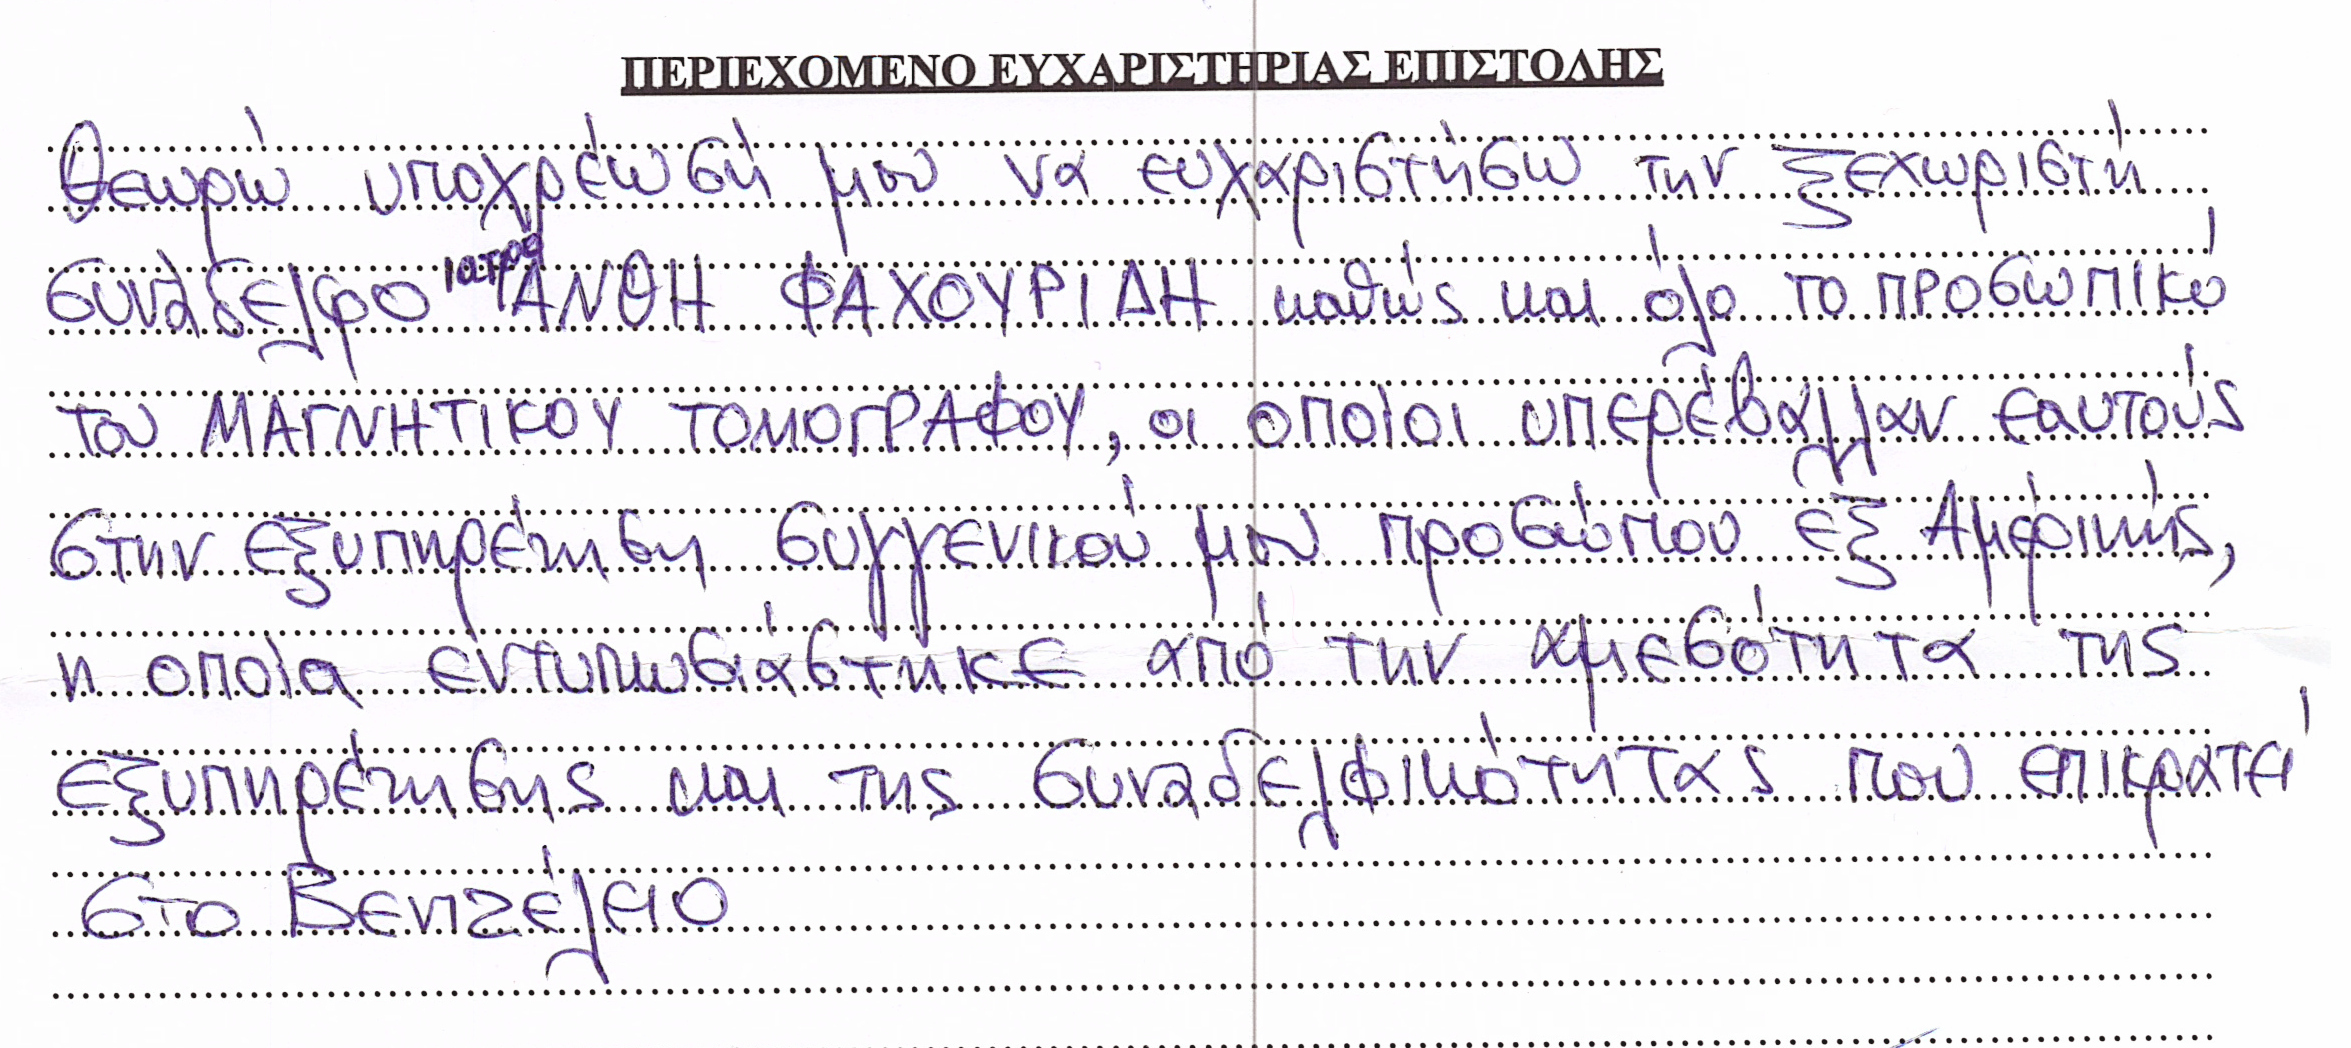 ΠΕΡΙΕΧΟΜΕΝΟ ΕΥΧΑΡΙΣΤΗΡΙΑΣ ΕΠΙΣΤΟΛΗΣ
Θεωρώ υποχρέωσή μου να ευχαριστήσω την ξεχωριστή
συνάδελφο ιατρό ΑΝΘΗ ΦΑΧΟΥΡΙΔΗ καθώς και όλο το προσωπικό
του ΜΑΓΝΗΤΙΚΟΥ ΤΟΜΟΓΡΑΦΟΥ, οι οποίοι υπερέβαλλαν εαυτούς
στην εξυπηρέτηση συγγενικού μου προσώπου εξ Αμερικής,
η οποία εντυπωσιάστηκε από την αμεσότητα της
εξυπηρέτησης και της συναδελφικότητας που επικρατεί
στο Βενιζέλειο